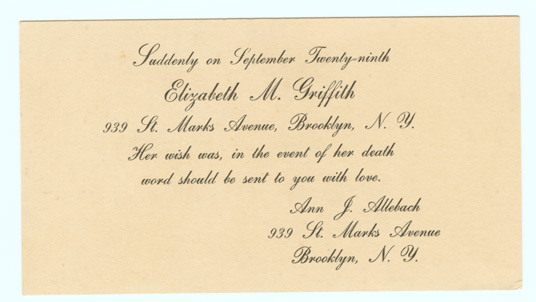 Suddenly on September Twenty-ninth
Elizabeth M. Griffith
939 St. Marks Avenue, Brooklyn, N. Y.
Her wish was, in the event of her death
word should be sent to you with love.
Ann J. Allebach
939 St. Marks Avenue
Brooklyn, N. Y.